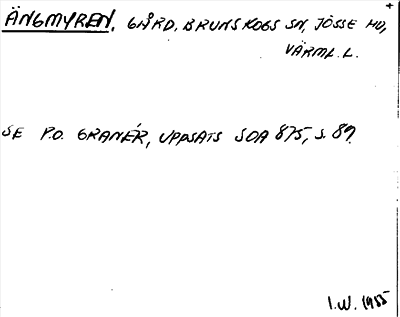 +
ÄNGMYREN, GÅRD, BRUNSKOGS SN, JÖSSE HD,
VÄRML. L.
SE P.O. GRANÉR, UPPSATS SOA 875, S. 89.
I.W. 1955